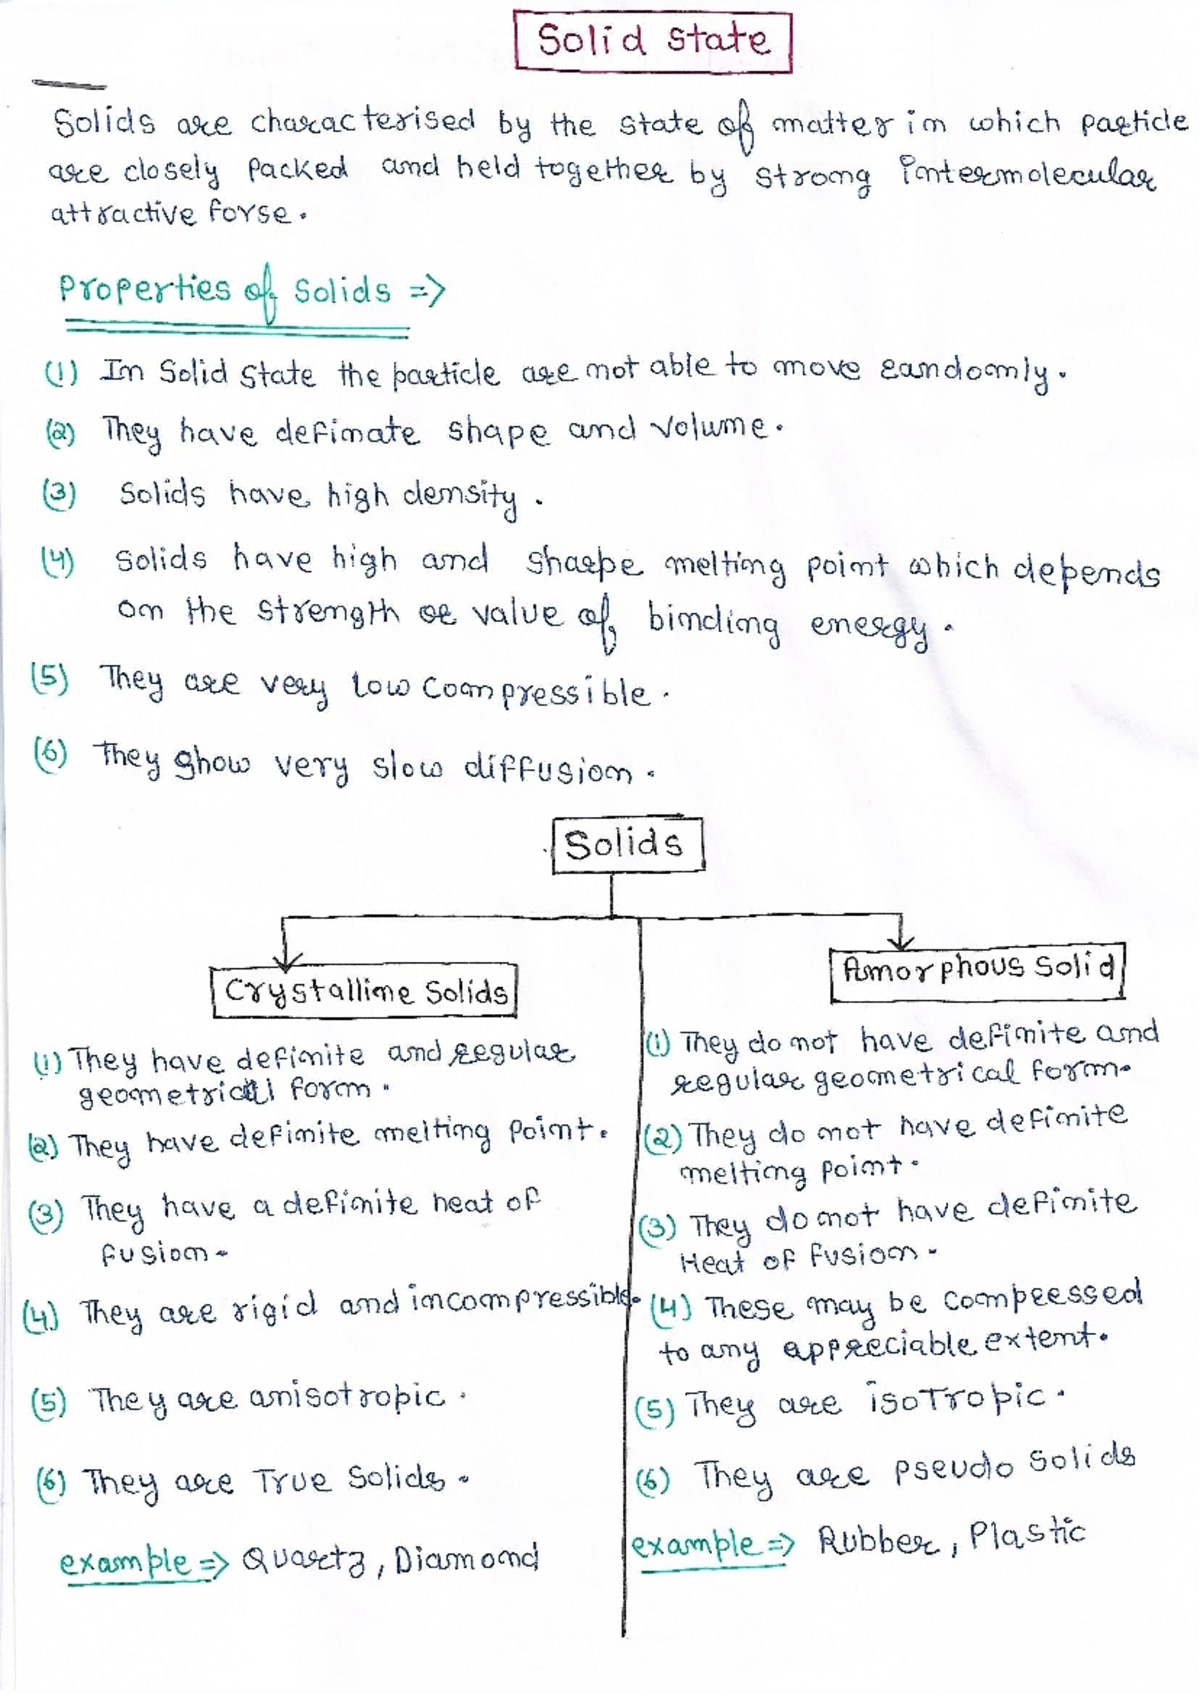 Solid state
Solids are characterised by the state of matter in which particle
are closely packed and held together by strong intermolecular
attractive forse.
Properties of Solids =>
(1) In Solid State the particle are not able to move randomly.
(2) They have definate shape and volume.
(3) Solids have high density.
(4) Solids have high and sharpe melting point which depends
on the strength or value of binding energy.
(5) They are very low compressible.
(6) They show very slow diffusion.
Solids
Crystalline Solids
(1) They have definite and regular
geometrical form.
(2) They have definite melting point.
(3) They have a definite heat of
fusion.
(4) They are rigid and incompressible.
(5) They are anisotropic.
(6) They are True Solids.
example => Quartz, Diamond
Amorphous Solid
(1) They do not have definite and
regular geometrical form.
(2) They do not have definite
melting point.
(3) They do not have definite
Heat of fusion.
(4) These may be compressed
to any appreciable extent.
(5) They are isoTropic.
(6) They are pseudo Solids
example => Rubber, Plastic